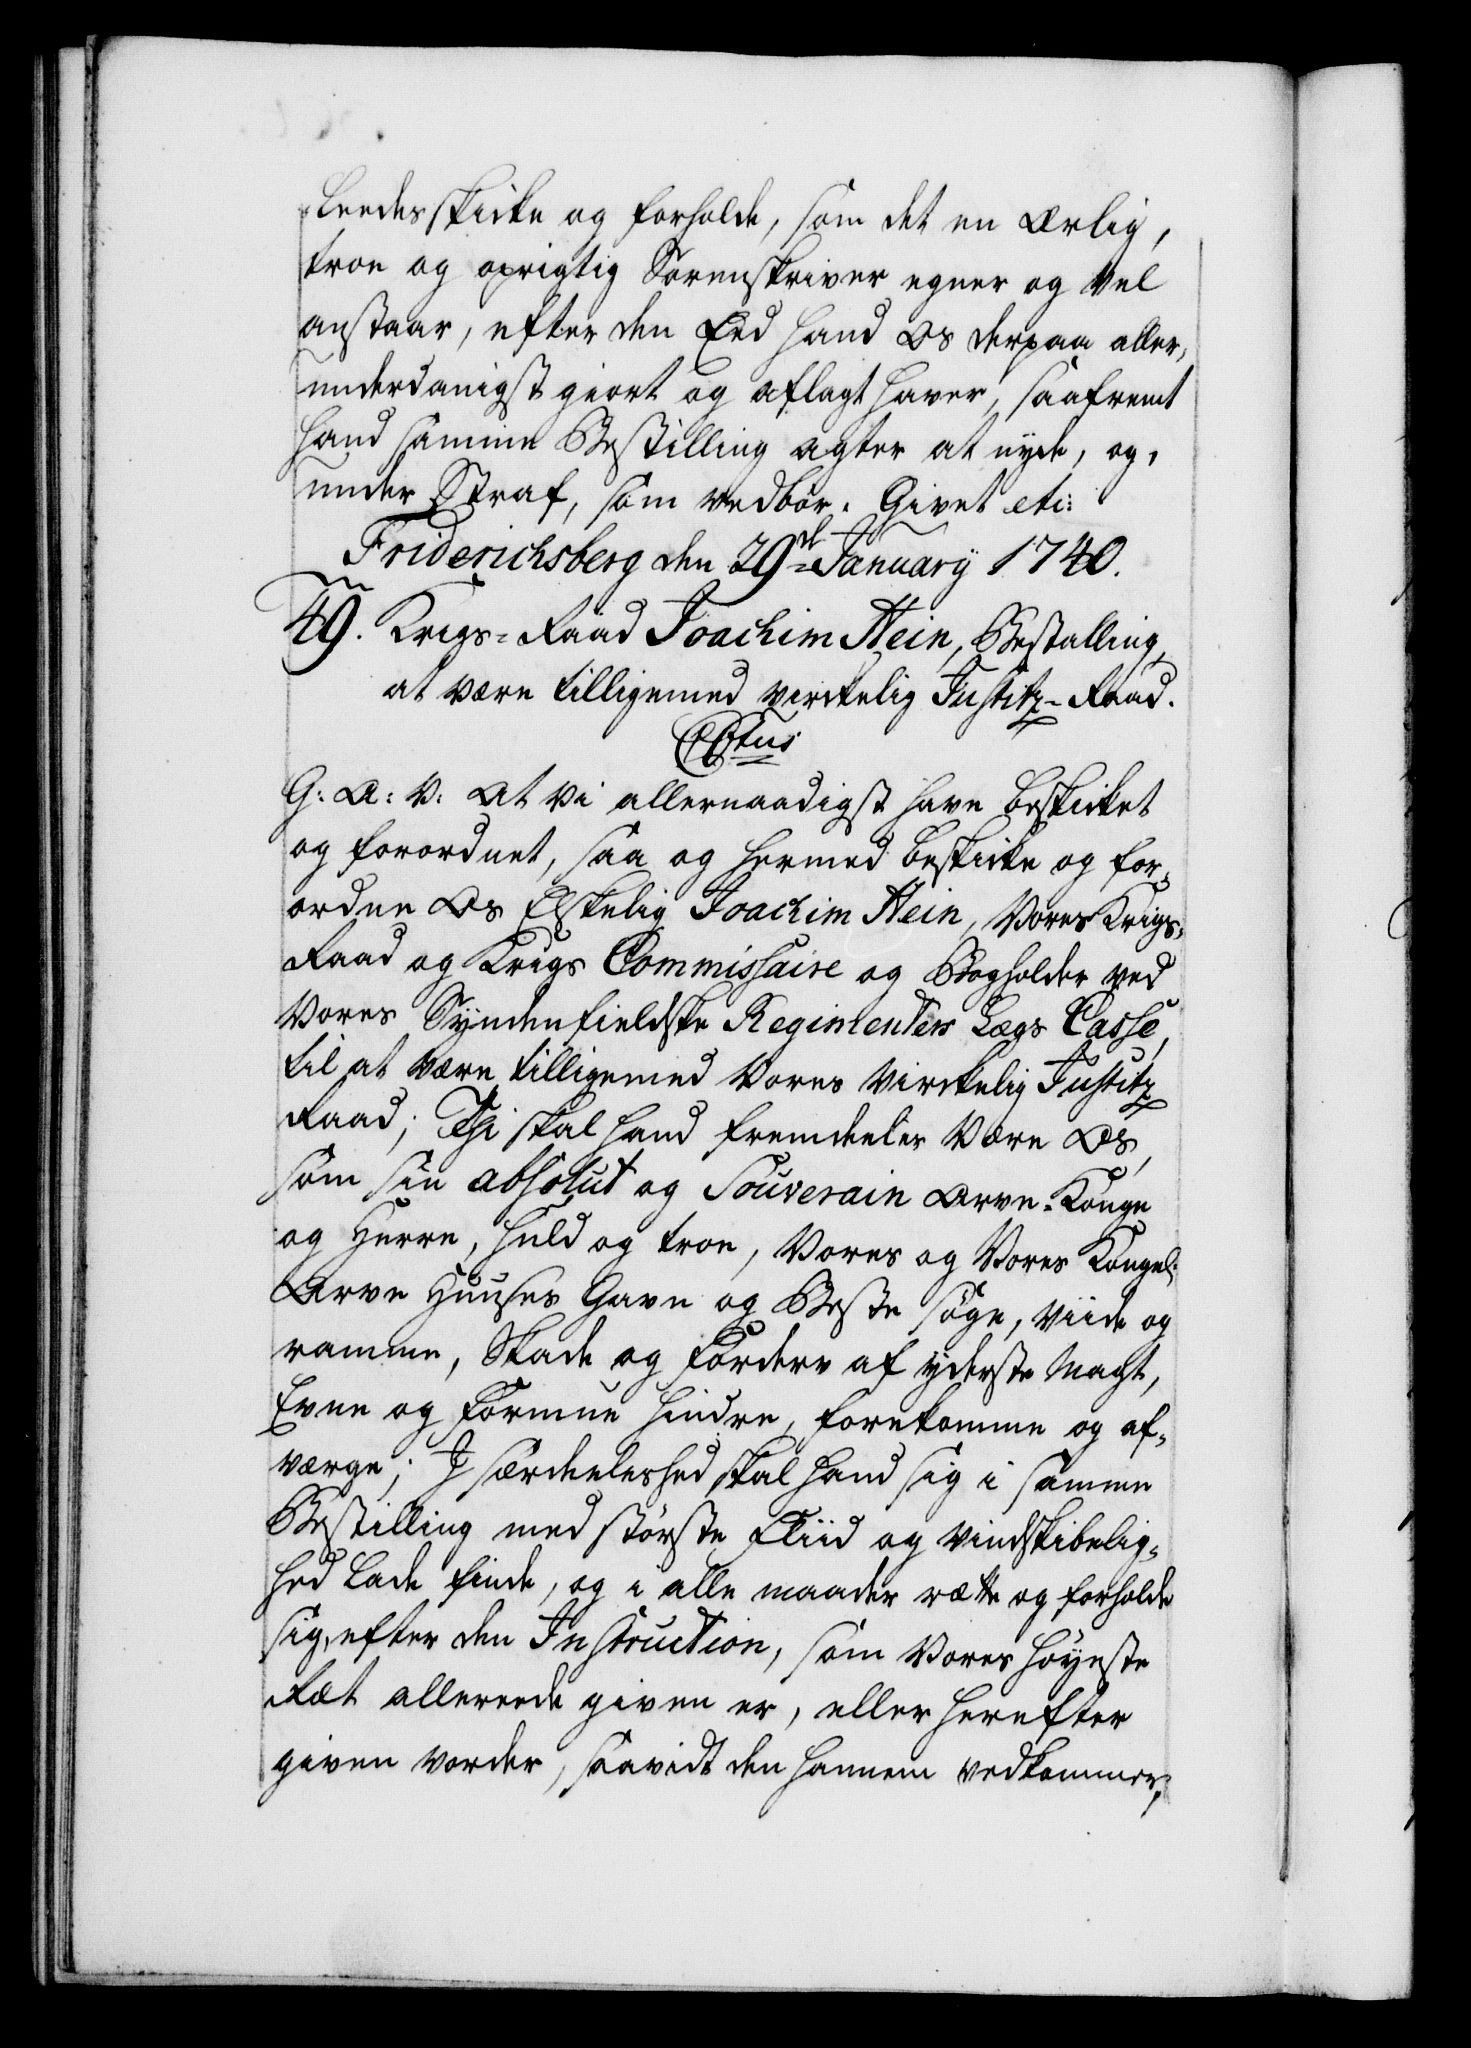 leedes skicke og forholde, som det en ærlig,
troe og oprigtig Sorenskriver egner og vel
anstaar, efter den Eed hand Os derpaa aller-
underdanigst giort og aflagt haver, saafremt
hand samme Bestilling agter at nyde, og,
under Straf, som vedbør. Givet etc:
Friderichsberg den 29de January 1740.
49. Krigs-Raad Joachim Hein, Bestalling,
at være tilligemed virckelig Justitz-Raad.
C6tus
G: A: V: At Vi allernaadigst have beskicket
og forordnet, saa og hermed beskicke og for-
ordne Os Elskelig Joachim Hein, Vores Krigs-
Raad og Krigs Commissaire og Bogholder ved
Vores Syndenfieldske Regimenters Lægs Casse,
til at være tilligemed Vores Virckelig Justitz
Raad; Thi skal hand fremdeeles være Os,
som sin absolut og Souverain Arve-Konge
og Herre, huld og troe, Vores og Vores Kongel:
Arve Huuses Gavn og Beste søge, viide og
ramme, Skade og Forderv af yderste Magt,
Evne og Formue hindre, forekomme og af-
værge; I særdeeleshed skal hand sig i samme
Bestilling med største Fliid og Vindskibelig-
hed lade finde, og i alle maader rætte og forholde
sig, efter den Instruction, som Vores høyeste
Ræt allereede given er, eller herefter
given vorder, saavidt den hannem vedkommer,